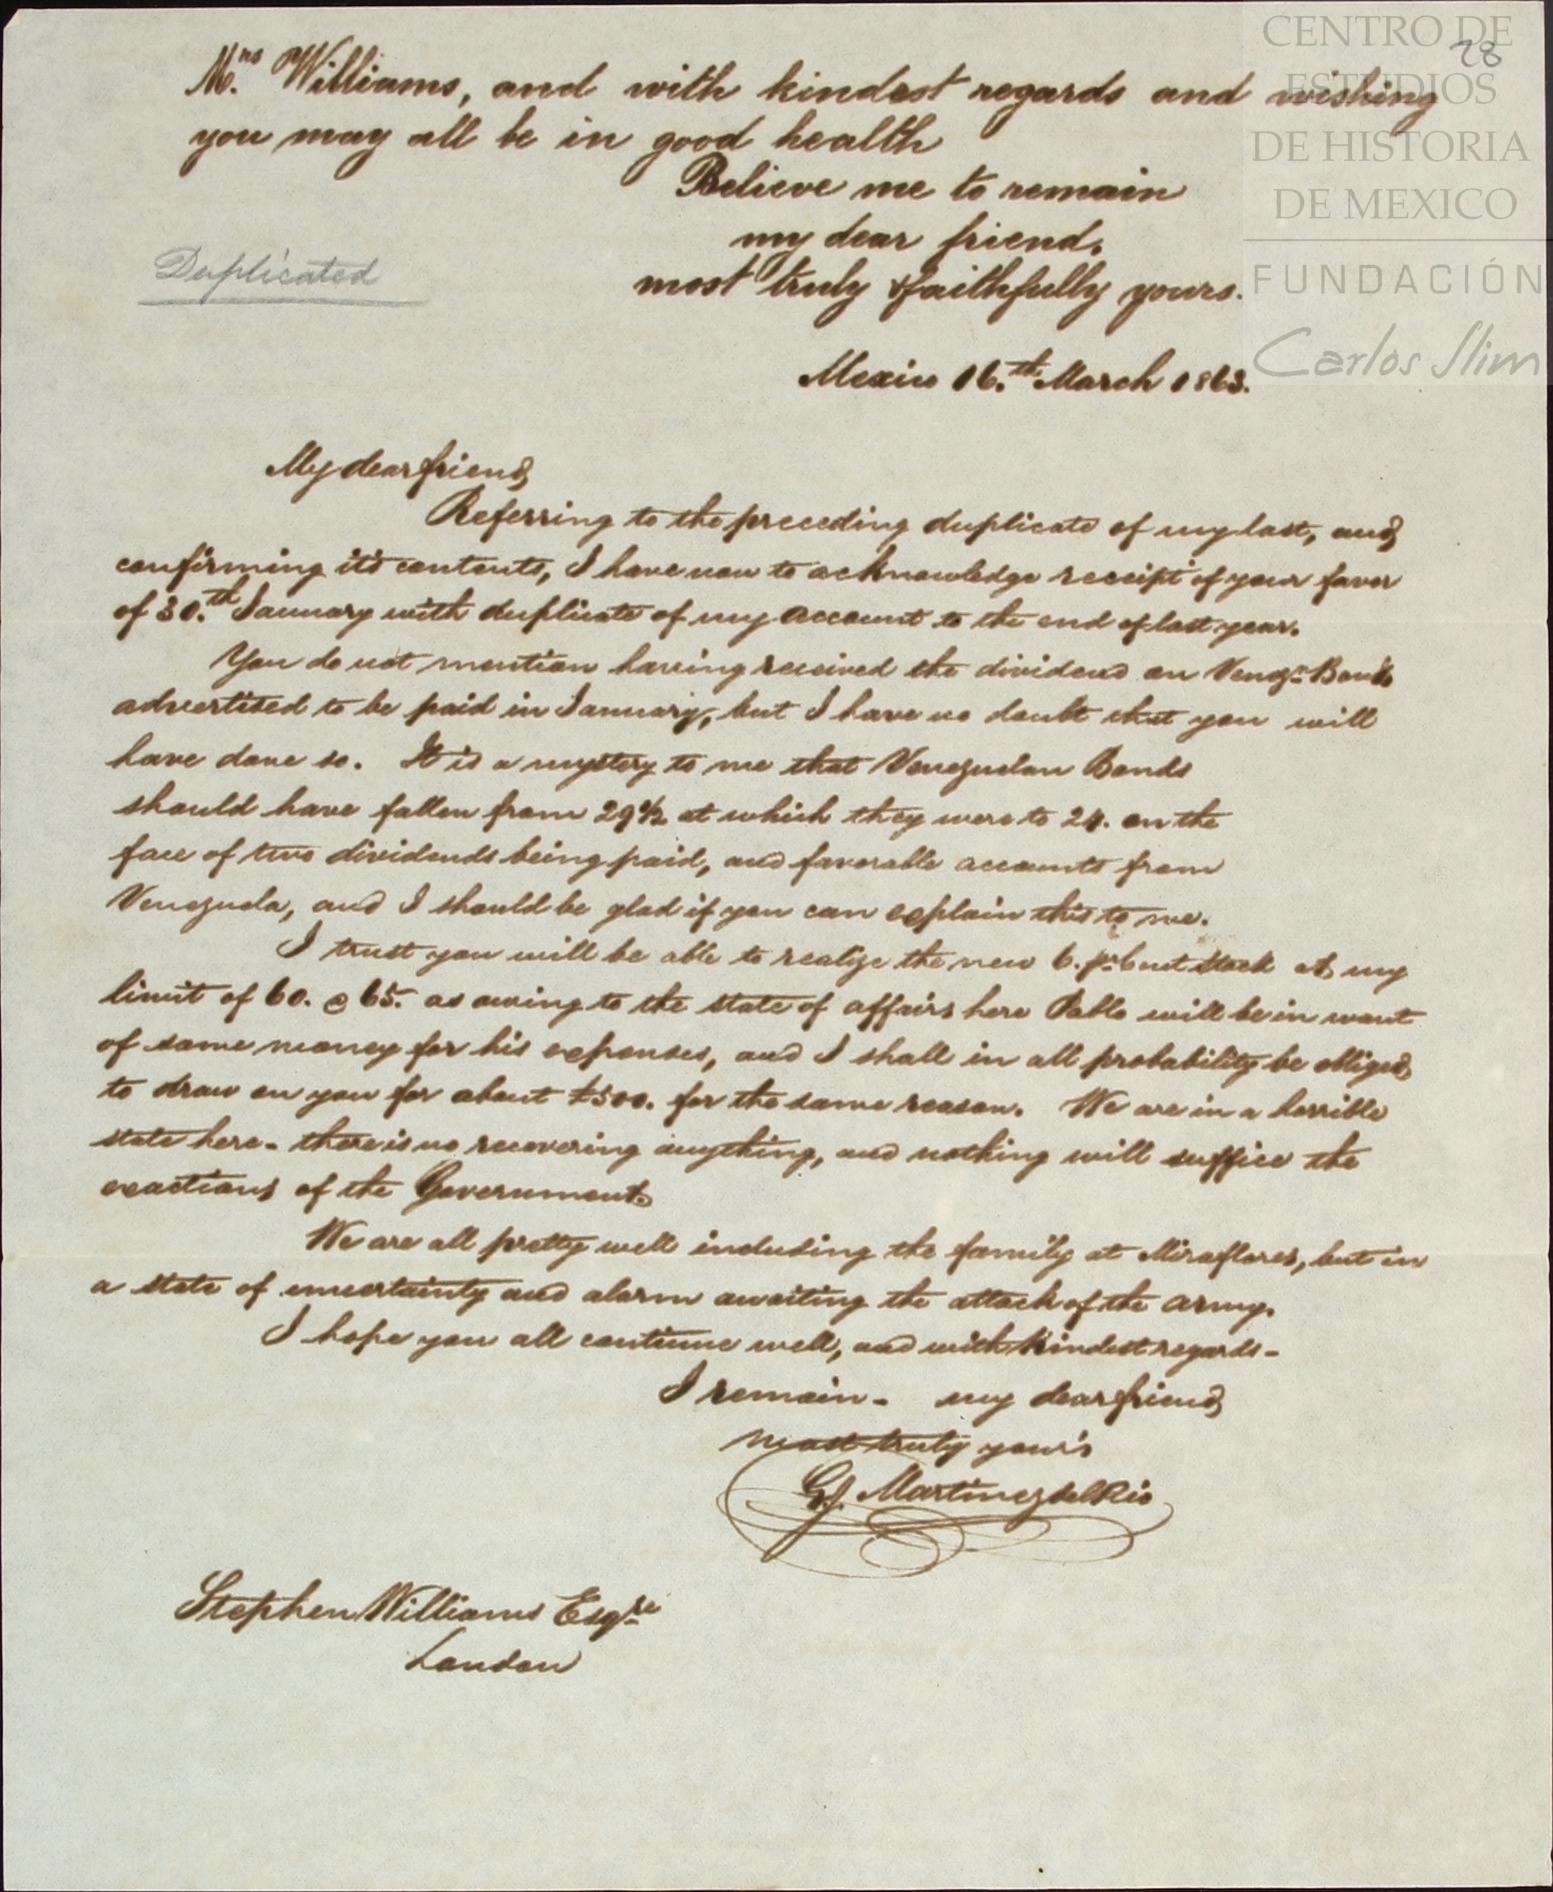 CENTRO DE
ESTUDIOS
DE HISTORIA
DE MEXICO
FUNDACIÓN
Carlos Slim
28
Mrs. Williams, and with kindest regards and wishing
you may all be in good health
Believe me to remain
my dear friend,
most truly & faithfully yours.
Duplicated
Mexico 16.th March 1863.
My dear friend
Referring to the preceding duplicate of my last, and
confirming it's contents, I have now to acknowledge receipt of your favor
of 30.th January with duplicate of my account to the end of last year.
You do not mention having received the dividend on Venezn Bonds
advertised to be paid in January, but I have no doubt that you will
have done so. It is a mystery to me that Venezuelan Bonds
should have fallen from 29½ at which they were to 24. on the
face of two dividends being paid, and favorable accounts from
Venezuela, and I should be glad if you can explain this to me.
I trust you will be able to realize the new 6. pr Cent Stock at my
limit of 60. @ 65. as owing to the state of affairs here Pablo will be in want
of some money for his expenses, and I shall in all probability be obliged
to draw on you for about £500. for the same reason. We are in a horrible
state here - there is no recovering anything, and nothing will suffice the
exactions of the Government.
We are all pretty well including the family at Miraflores, but in
a state of uncertainty and alarm awaiting the attack of the army.
I hope you all continue well, and with kindest regards -
I remain - my dear friend
most truly your's
G.J. Martinez del Rio
Stephen Williams Esqre
London